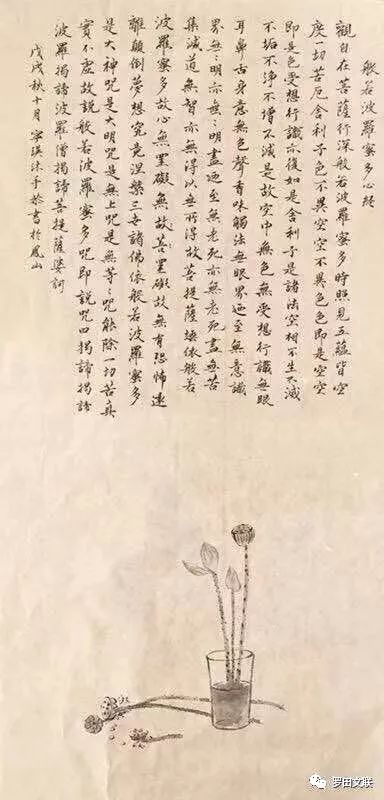 般若波羅蜜多心經
觀自在菩薩行深般若波羅蜜多時照見五蘊皆空
度一切苦厄舍利子色不異空空不異色色即是空空
即是色受想行識亦復如是舍利子是諸法空相不生不滅
不垢不淨不增不減是故空中無色無受想行識無眼
耳鼻舌身意無色聲香味觸法無眼界乃至無意識
界無〻明亦無〻明盡迺至無老死亦無老死盡無苦
集滅道無智亦無得以無所得故菩提薩埵依般若
波羅蜜多故心無罣礙無罣礙故無有恐怖遠
離顛倒夢想究竟涅槃三世諸佛依般若波羅蜜多
是大神咒是大明咒是無上咒是無等〻咒能除一切苦真
實不虛故說般若波羅蜜多咒即說咒曰揭諦揭諦
波羅揭諦波羅僧揭諦菩提薩婆訶
戊戌秋十月寧瑛沐手恭書於鳳山
罗田文联